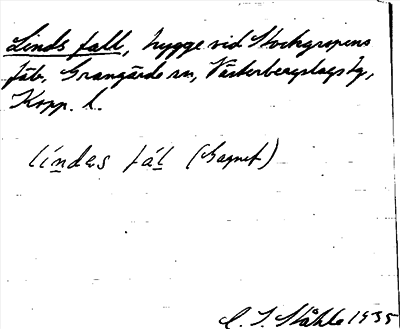 Linds fall, hygge vid Stockgropens
fäb., Grangärde sn, Västerbergslags tg,
Kopp. l.
lindas fál (Gagnef)
C. I. Ståhle 1935